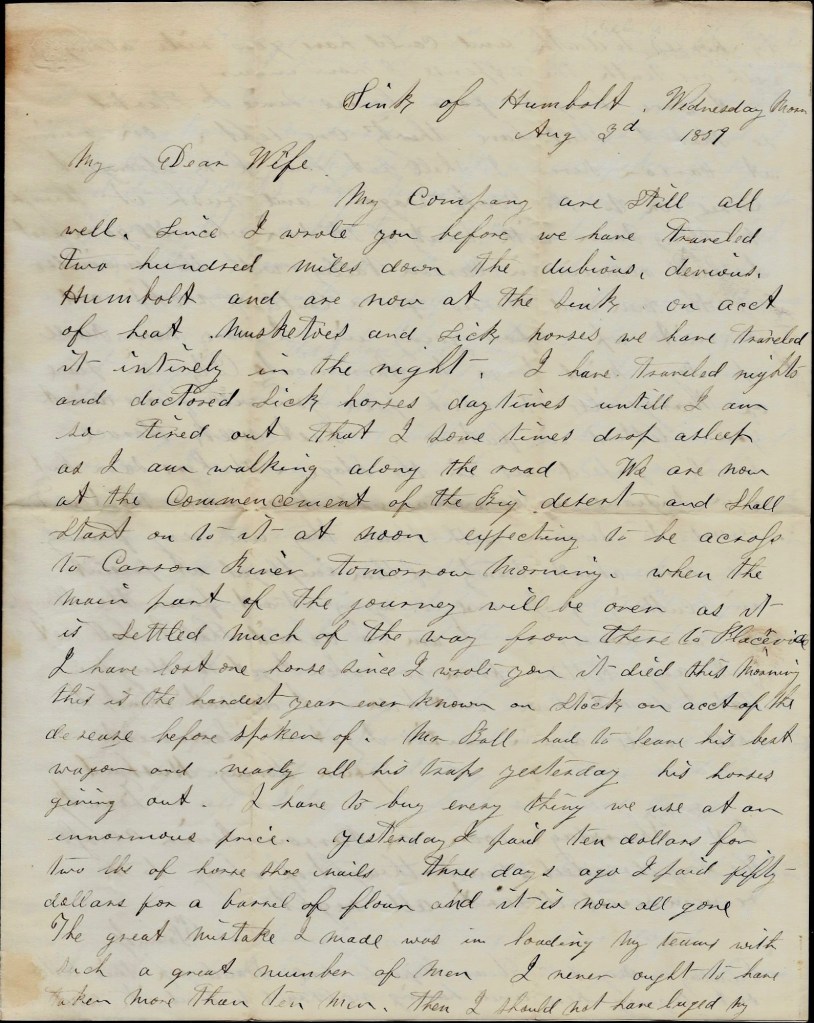 Sink of Humbolt. Wednesday Morn
Aug 3d 1859
My Dear Wife.
My Company are still all
well. Since I wrote you before we have traveled
two hundred miles down the dubious, devious,
Humbolt and are now at the Sink. on acct
of heat. Musketoes and sick horses we have traveled
it intirely in the night. I have traveled nights
and doctored sick horses daytimes untill I am
so tired out that I some times drop asleep
as I am walking along the road We are now
at the Commencement of the Big desert and shall
start on to it at noon expecting to be across
to Carson River tomorrow morning. when the
main part of the journey will be over as it
is settled much of the way from there to Placerville
I have lost one horse since I wrote you it died this morning
this is the hardest year ever known on stock on acct of the
desease before spoken of. Mr Ball had to leave his best
wagon and nearly all his traps yesterday his horses
giving out. I have to buy every thing we use at an
innormous price. yesterday I paid ten dollars for
two lbs of horse shoe nails. three days ago I paid fifty
dollars for a barrel of flour and it is now all gone
The great mistake I made was in loading my teams with
such a great number of men I never ought to have
taken more than ten men. then I should not have my